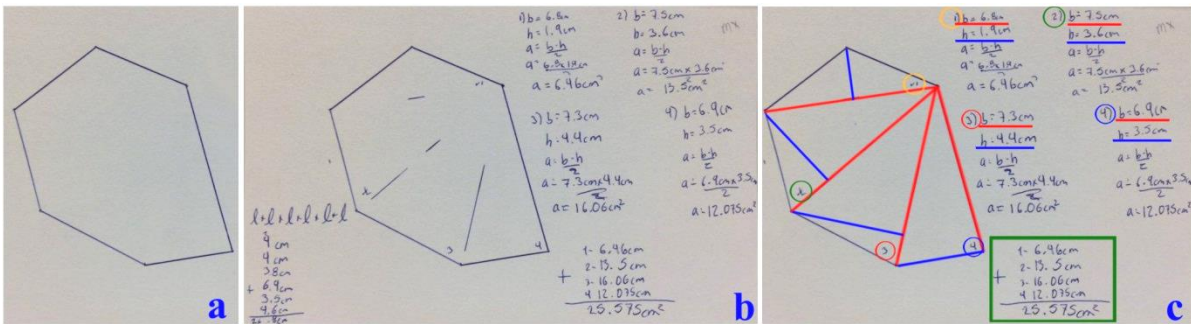 a
1) b= 6.8cm
h= 1.9cm
a= b·h
2
a= 6.8x1.9cm
2
a= 6.46cm²
2) b= 7.5cm
h= 3.6cm
a= b·h
2
a= 7.5cm x 3.6cm
2
a= 13.5cm²
mx
3) b= 7.3cm
h= 4.4cm
a= b·h
2
a= 7.3cm x 4.4cm
2
a= 16.06cm²
4) b= 6.9cm
h= 3.5cm
a= b·h
2
a= 6.9cm x 3.5cm
2
a= 12.075cm²
3
4
l+l+l+l+l+l
4 cm
4 cm
3.8cm
+ 6.9cm
3.5cm
4.6cm
1- 6.46cm
2- 13.5 cm
3- 16.06cm
+ 4 12.075cm
25.575cm²
b
1) b= 6.8cm
h= 1.9cm
a= b·h
2
a= 6.8x1.9cm
2
a= 6.46cm²
2) b= 7.5cm
h= 3.6cm
a= b·h
2
a= 7.5cm x 3.6cm
2
a= 13.5cm²
mx
3) b= 7.3cm
h= 4.4cm
a= b·h
2
a= 7.3cm x 4.4cm
2
a= 16.06cm²
4) b= 6.9cm
h= 3.5cm
a= b·h
2
a= 6.9cm x 3.5cm
2
a= 12.075cm²
3
4
1- 6.46cm
2- 13.5 cm
3- 16.06cm
+ 4 12.075cm
25.575cm²
c